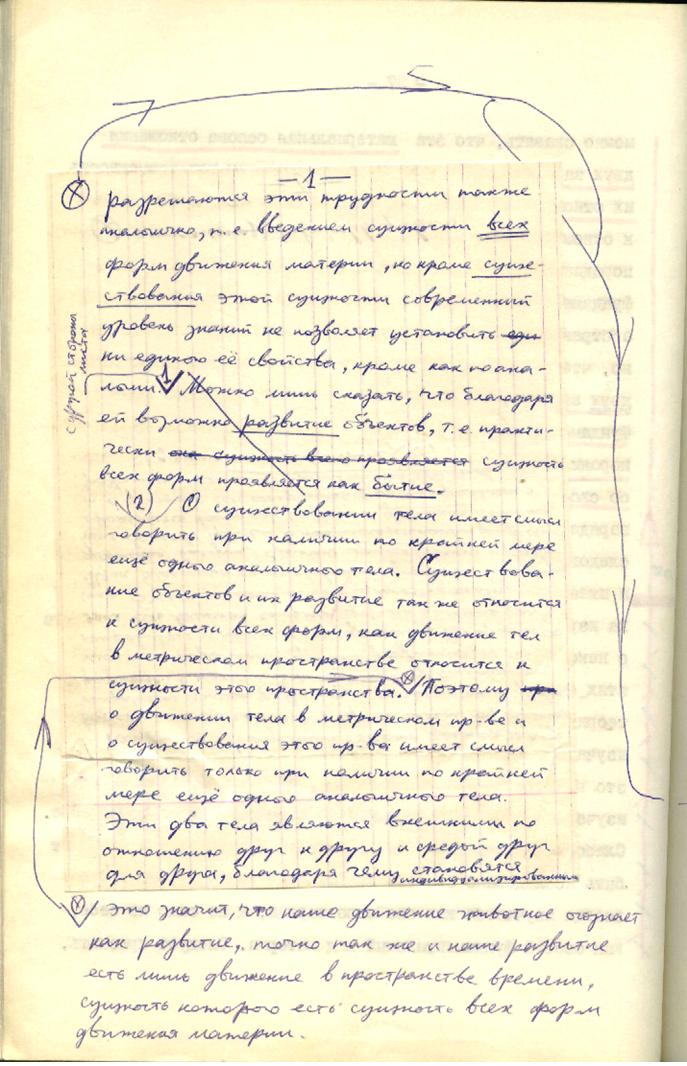 — 1 —
разрешаются эти трудности также
аналогично, т.е. введением сущности всех
форм движения материи, но кроме суще-
ствования этой сущности современный
уровень знаний не позволяет установить еди
ни единого её свойства, кроме как по ана-
логии. 1 Можно лишь сказать, что благодаря
ей возможно развитие объектов, т.е. практи-
чески она сущность всего проявляется сущность
всех форм проявляется как бытие.
(2) О существовании тела имеет смысл
говорить при наличии по крайней мере
ещё одного аналогичного тела. Существова-
ние объектов и их развитие так же относится
к сущности всех форм, как движение тел
в метрическом пространстве относится к
сущности этого пространства. Поэтому
о движении тела в метрическом пр-ве и
о существования этого пр-ва имеет смысл
говорить только при наличии по крайней
мере ещё одного аналогичного тела.
Эти два тела являются внешними по
отношению друг к другу и средой друг
для друга, благодаря чему становятся
индивидуализированным
с другой стороны
листа
Это значит, что наше движение животное
как развитие, точно так же и наше развитие
есть лишь движение в пространстве времени,
сущность которого есть сущность всех форм
движения материи.
можно сказать, что эта материальная основа отношения